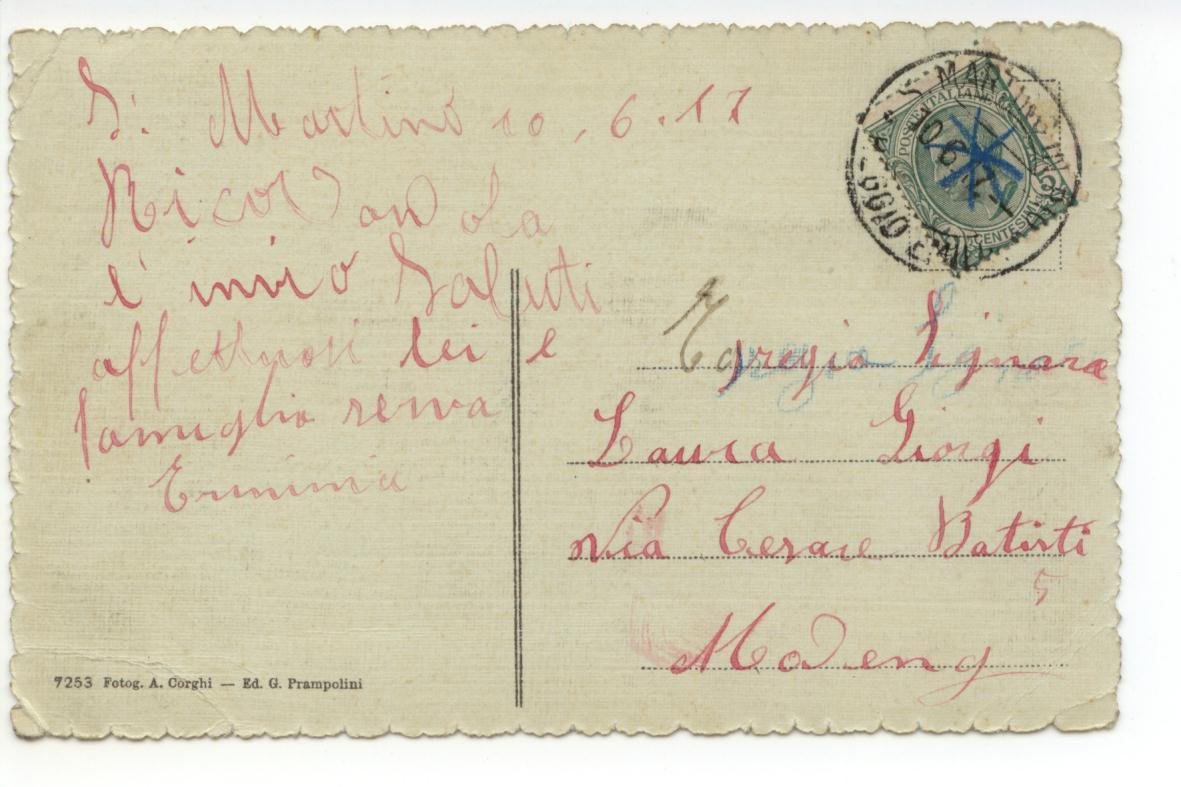 S. Martino 10.6.17
Ricordandola
l' invio Saluti
affettuosi lei e
famiglia serva
Erminia
7253 Fotog. A. Corghi — Ed. G. Prampolini
S MARTINO IN RIO
10.6.17
POSTE ITALIANE
CENTESIMI
Egregia Signora
Laura Giorgi
Via Cesare Batisti
5
Modena